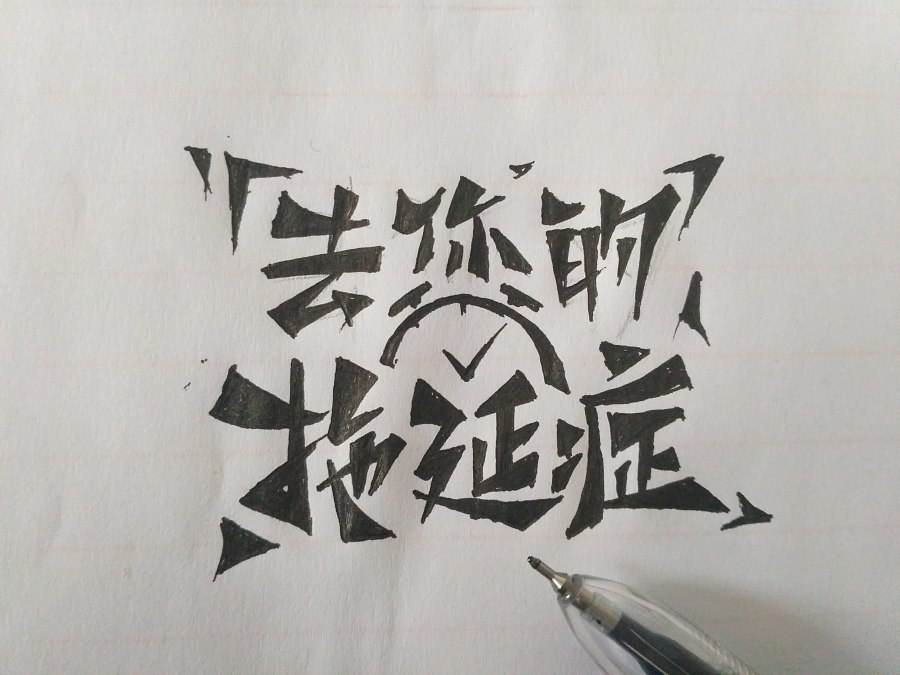 去你的
拖延症